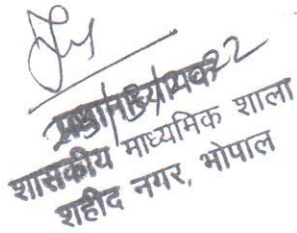 प्रधानाध्यापक
शासकीय माध्यमिक शाला
शहीद नगर, भोपाल